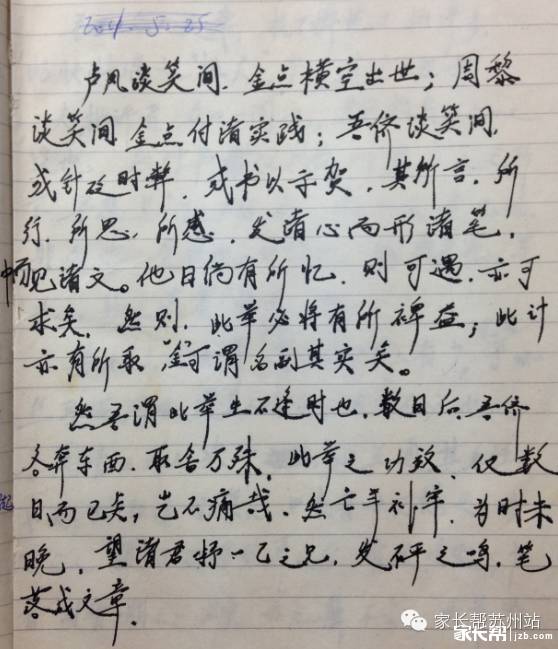 2014.5.25
卢风谈笑间，金点横空出世；周黎
谈笑间金点付诸实践；吾侪谈笑间，
或针砭时弊，或书以示贺，其所言，所
行，所思，所感，发诸心而形诸笔，
而见诸文。他日倘有所忆，则可遇，亦可
求矣。然则，此举必将有所裨益；此计
亦有所取，金可谓名副其实矣。
然吾谓此举生不逢时也，数日后，吾侪
各奔东西，取舍万殊，此举之功效，仅数
日而已矣，岂不痛哉。然亡羊补牢，为时未
晚，望诸君抒一己之见，发不平之鸣，笔
落成文章。
家长帮苏州站
家长帮 jzb.com